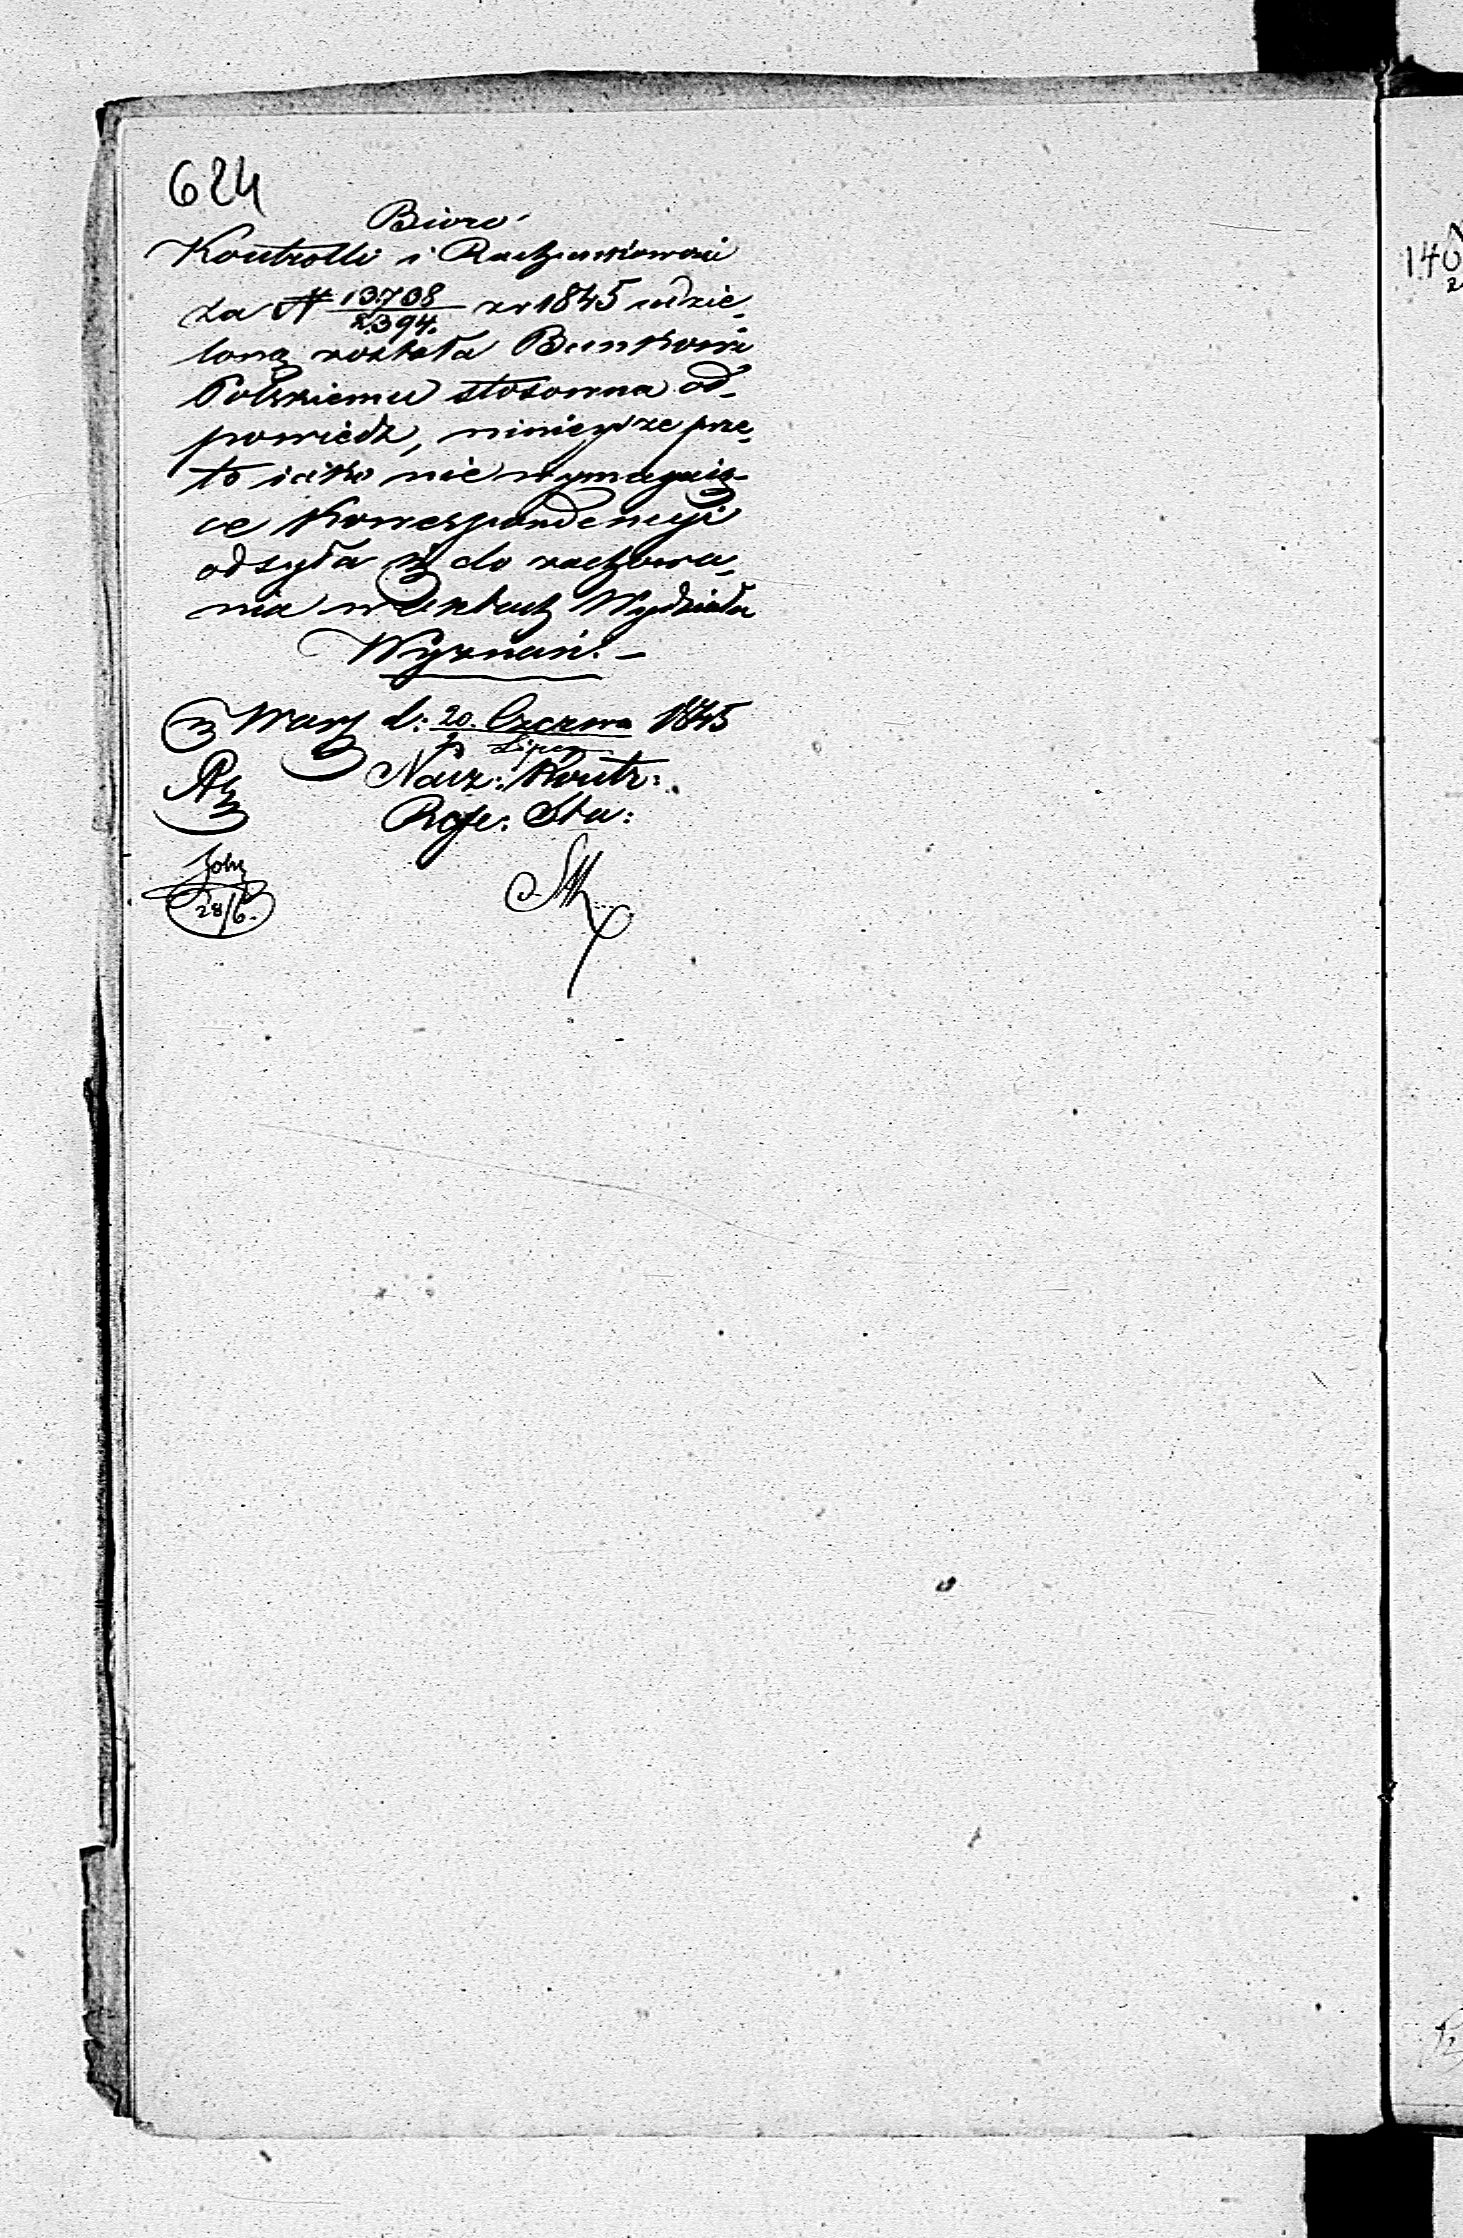 624
Bióro
Kontrolli i Rachunkowości
Za N 13708/2394. z r 1845 udzie-
loną została Bankowi
Polskiemu stosowna od-
powiedź, nimieysze prze-
to iako nie wymagaią-
ce Korrespondencyi
odsyła się do zachowa-
nia w Aktach Wydziału
Wyznań. —
w Warsz d: 20. Czerwca 1845
2 Lipca
Nacz: Kontr:
Radc: Sta:
28/6.
140